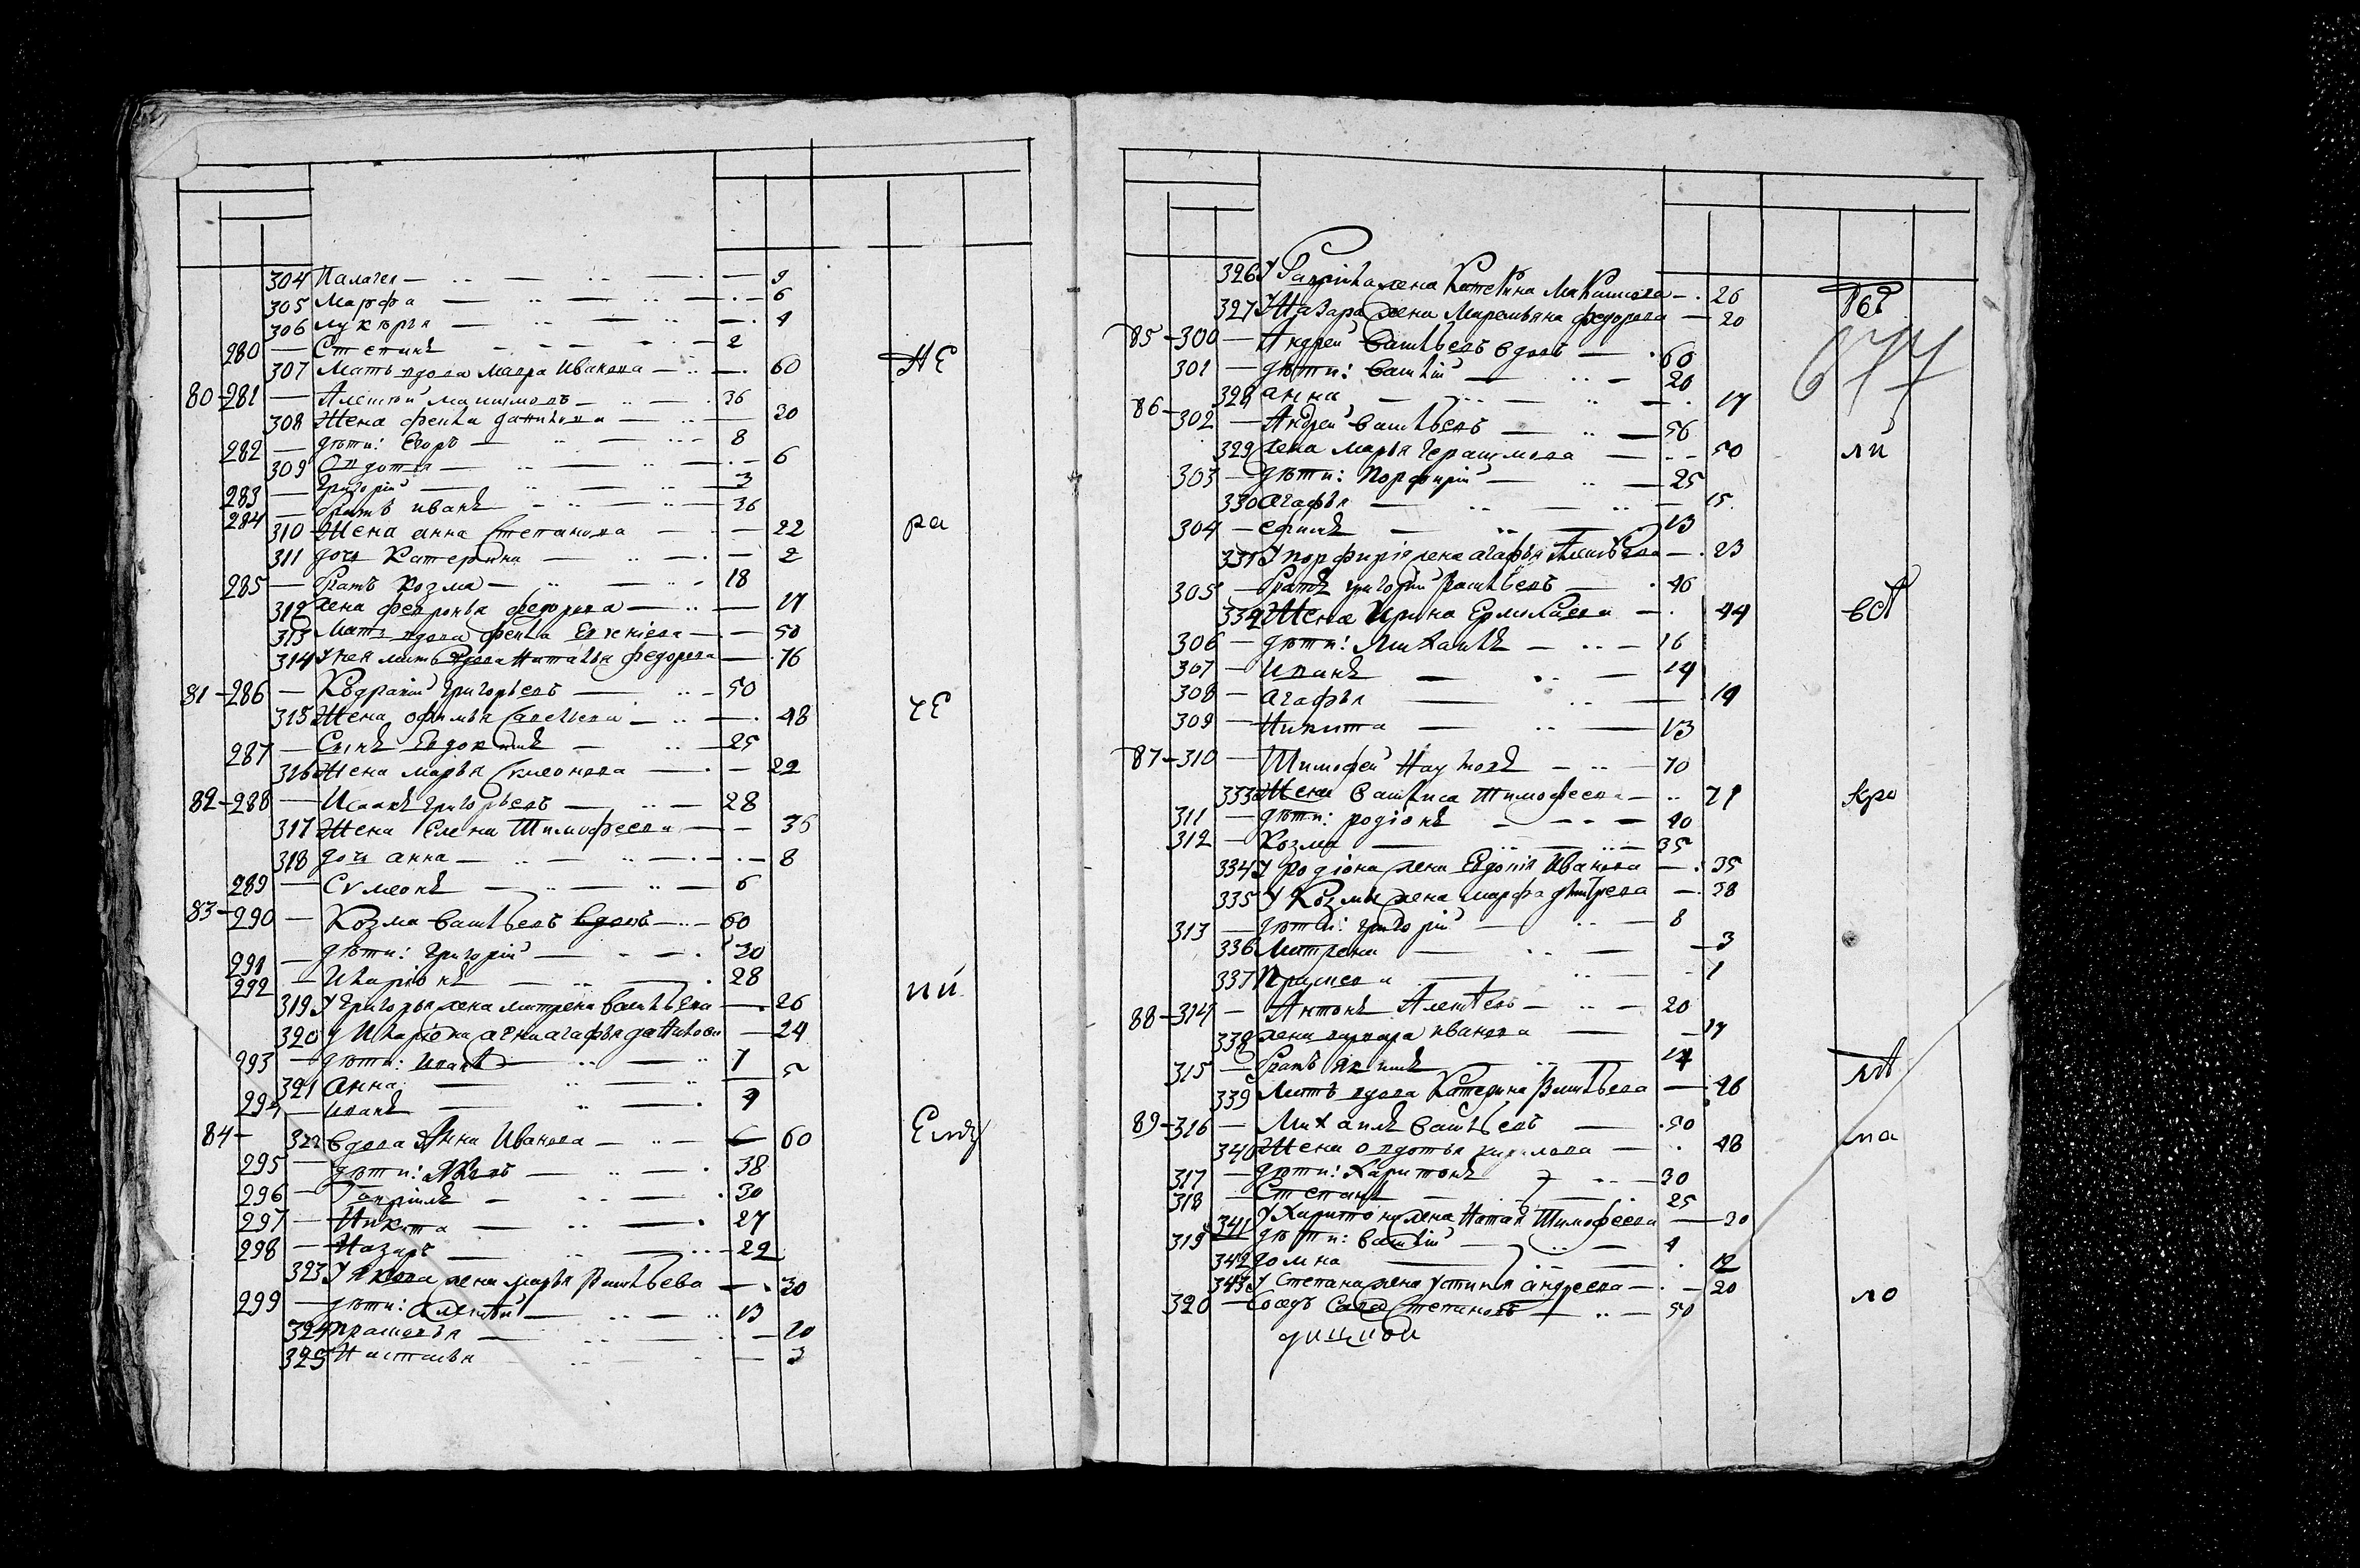 304 Палагея 9
305 Марфа 6
306 лукерья 4
280 Степанъ 2
307 Мать вдова мавра Иванова 60 НЕ
80 281 Алексей максимовъ 36
308 Жена фекла данилова 30
282 дети: Егоръ 8
309 Овдотья 6
283 григорій 3
284 братъ иванъ 26
310 Жена анна Степанова 22 ра
311 дочь Катерина 2
285 братъ Козма 18
312 жена февронья федорова 17
313 Мать вдова фекла 50
314 мать вдова Наталья федорова 76
81 286 Кодратій григорьевъ 50
315 Жена офимья Савельева 48 чЕ
287 Сынъ Евдокимъ 25
316 Жена марья Симеонова 22
82 288 Исаакъ григорьевъ 28
317 Жена Елена Тимофеева 36
318 дочь анна 8
289 Симеонъ 6
83 290 Козма васильевъ вдовъ 60
291 дети: григорій 30
292 Иларіонъ 28 ий
319 У григорья жена матрена васильева 26
320 У Иларіона жена агафья данилова 24
293 дети: иванъ 7
321 Анна 5
294 иванъ 4
84 322 вдова Анна Иванова 60
295 дети: Яковъ 38
296 Гаврилъ 30
297 Никита 27
298 Назаръ 22
323 У Якова жена марья васильева 30
299 дети: Алексей 13
324 прасковья 10
325 Настасья 3
326 У Гаврила жена Катерина Максимова 26
327 У Назара жена Маремьяна федорова 20
677
85 300 Андрей васильевъ вдовъ 60
301 дети: василій 20
328 анна 17
86 302 Андрей васильевъ 56
329 жена марья герасимова 50 ли
303 дети: порфирій 25
330 агафья 15
304 ефимъ 13
331 У порфирія жена агафья Алексеева 23
305 братъ григорій васильевъ 46
332 Жена Ирина Ермолаева 44
306 дети: Михаилъ 16
307 Иванъ 14
308 агафья 14
309 Никита 13
87 310 Тимофей Наумовъ 70
333 Жена василиса Тимофеева 71 кро
311 дети: родіонъ 40
312 Козма 35
334 У родіона жена Евдокія Иванова 35
335 У Козмы жена марфа дмитрева 38
313 дети: григорій 8
336 Матрена 3
337 Прасковья 1
88 314 Антонъ Алексеевъ 20
338 жена варвара иванова 17
315 братъ 14
339 Мать вдова Катерина васильева 46
89 316 Михаилъ васильевъ 50 ма
340 Жена овдотья кирилова 48
317 дети: Харитонъ 30
318 Степанъ 25
341 У Харитона жена Наталья Тимофеева 30
319 дети: василій 4
342 домна 12
343 У Степана жена устинья андреева 20
320 Соседъ Сава Степановъ 50 ло